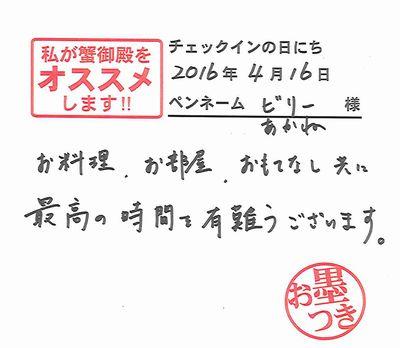 私が蟹御殿を
オススメ
します!!
チェックインの日にち
2016年4月16日
ペンネーム ビリー 様
あかね
お料理、お部屋、おもてなし共に
最高の時間を有難うございます。
お墨つき